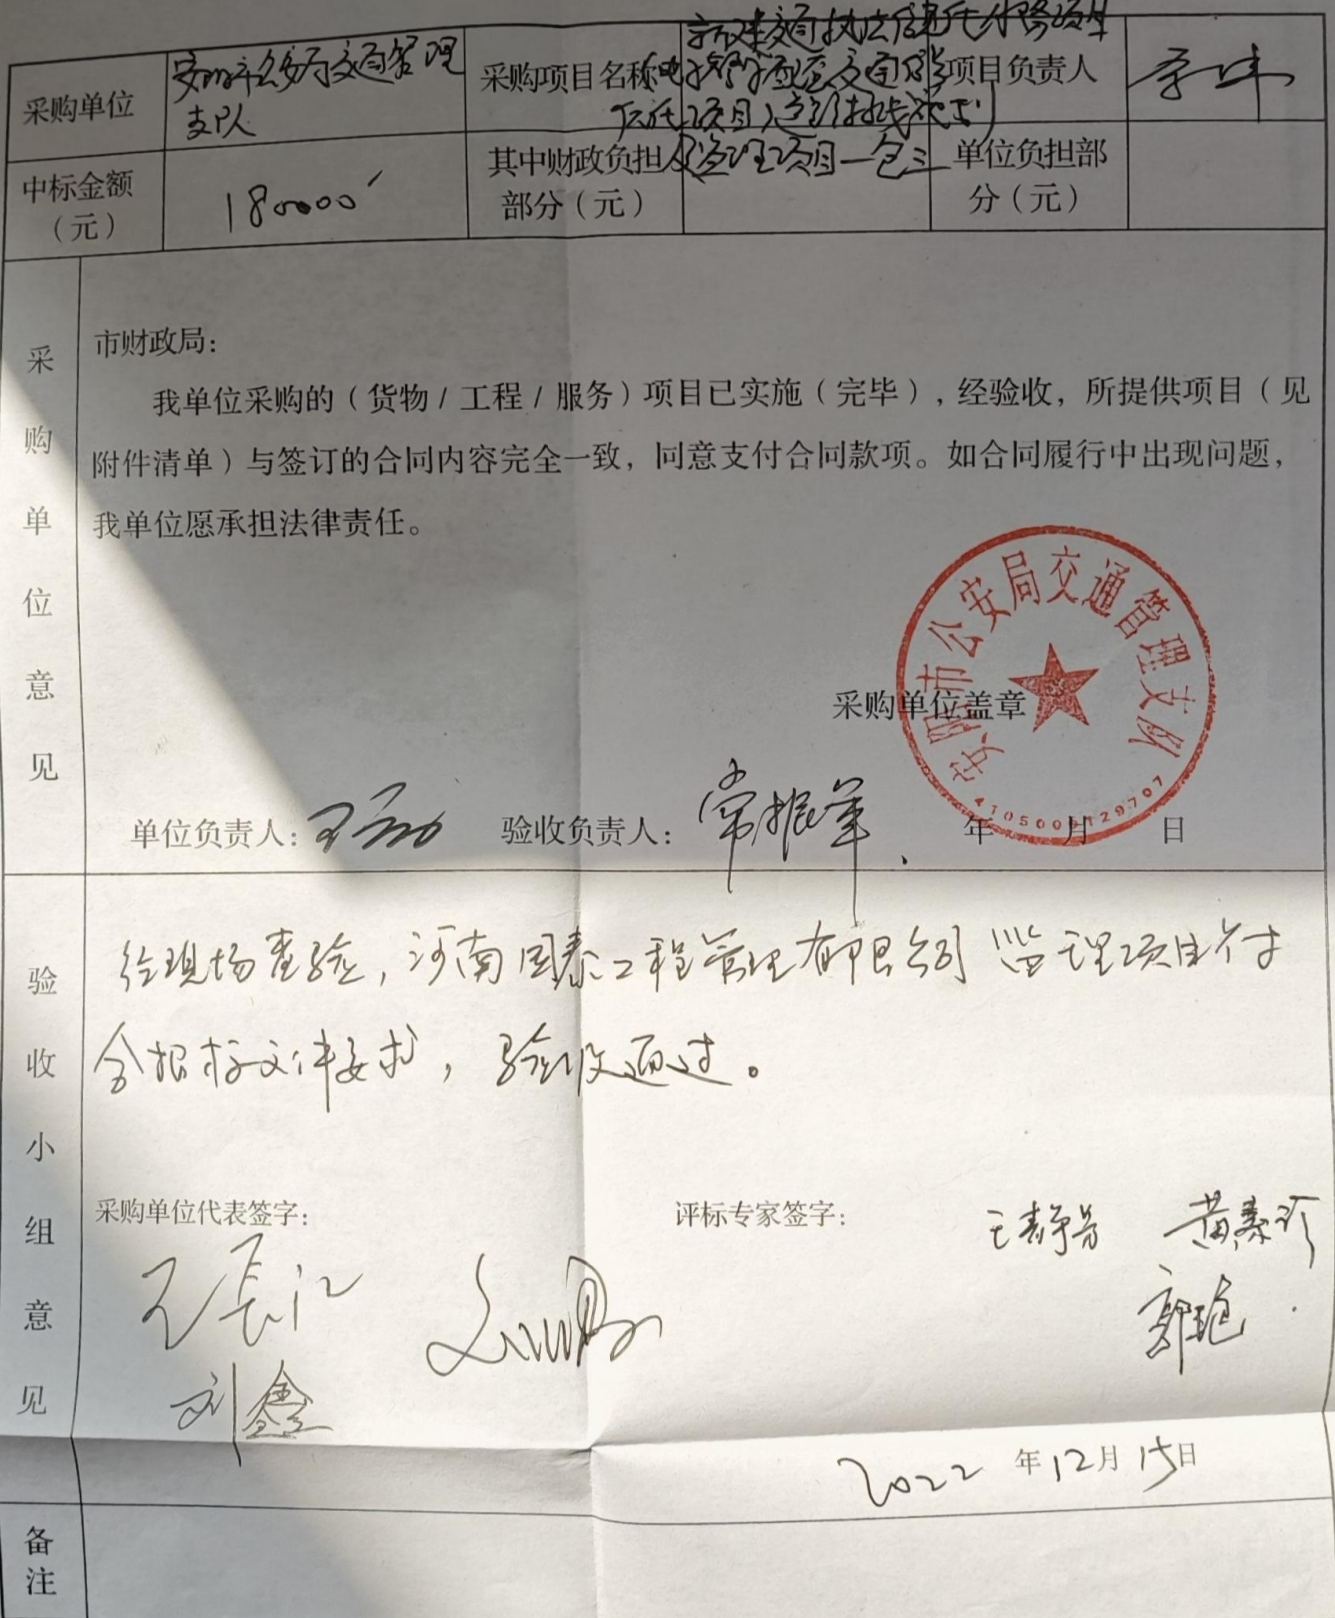 采购单位
安阳市公安局交通管理
支队
采购项目名称
新建交通执法
项目
项目负责人
中标金额
（元）
180000
其中财政负担
部分（元）
监理项目一包三
单位负担部
分（元）
采购单位意见
市财政局：
我单位采购的（货物/工程/服务）项目已实施（完毕），经验收，所提供项目（见
附件清单）与签订的合同内容完全一致，同意支付合同款项。如合同履行中出现问题，
我单位愿承担法律责任。
安阳市公安局交通管理支队
采购单位盖章
单位负责人：
验收负责人：常振军
年 月 日
验收小组意见
经现场查验，河南国泰工程管理有限公司监理项目符
合招标文件要求，验收通过。
采购单位代表签字：
评标专家签字：
王静芳 黄秦珍
王长江
刘鑫
2022年12月15日
备注